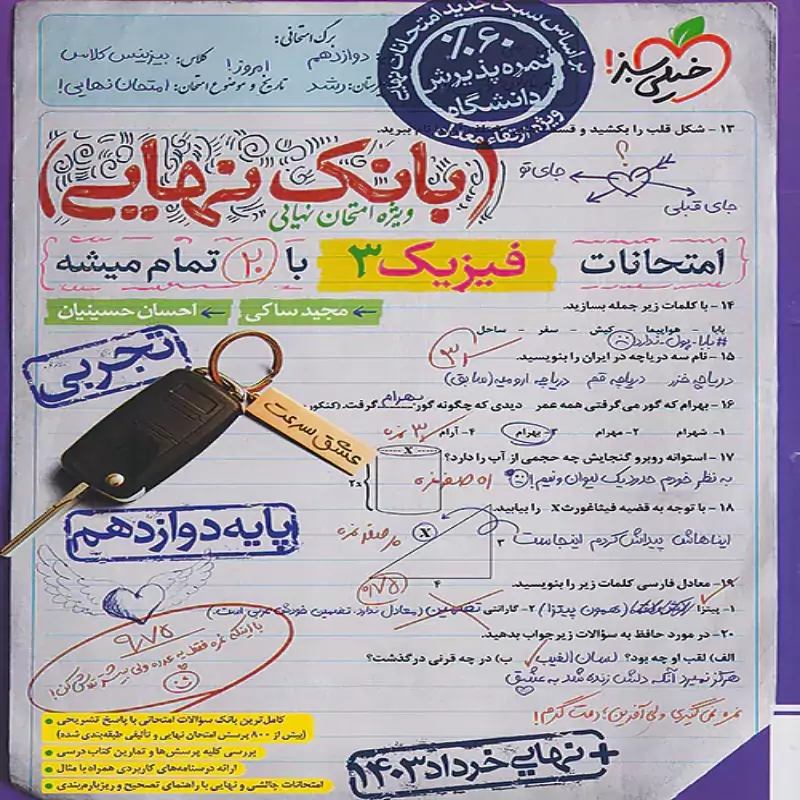 برگ امتحانی:
دوازدهم
کلاس: بیزینس کلاس
امروز!
تاریخ و موضوع امتحان: امتحان نهایی!
رشد
بر اساس سبک جدید امتحانات نهایی
۶۰٪
نمره پذیرش
دانشگاه
ویژه ارتقاء معدل
خیلی سبز!
۱۳ - شکل قلب را بکشید و
نام ببرید.
؟
جای تو
جای قبلی
(بانک نهایی)
ویژه امتحان نهایی
امتحانات فیزیک ۳ با ۲۰ تمام میشه
← مجید ساکی ← احسان حسینیان
۱۴ - با کلمات زیر جمله بسازید.
بابا - هواپیما - کیش - سفر - ساحل
#بابا_پول_ندارد
۱۵ - نام سه دریاچه در ایران را بنویسید.
دریاچه خزر دریاچه قم دریاچه ارومیه (سابق)
۱۶ - بهرام که گور می‌گرفتی همه عمر دیدی که چگونه گور بهرام گرفت. (کنکور
۱- شهرام ۲- مهرام ۳- بهرام ۴- آرام
۳ نمره
۱۷ - استوانه روبرو گنجایش چه حجمی از آب را دارد؟
به نظر خودم حدود یک لیوان و نیم!
صفر نمره
x
۲x
۱۸ - با توجه به قضیه فیثاغورث x را بیابید.
ایناهاش پیداش کردم اینجاست
صفر نمره
X
۳
۴
۰/۷۵
۱۹- معادل فارسی کلمات زیر را بنویسید.
۱- پیتزا (همون پیتزا) ۲- گارانتی تضمین (معادل ندارد. تضمین خودش عربی است.)
۲۰- در مورد حافظ به سؤالات زیر جواب بدهید.
الف) لقب او چه بود؟ لسان الغیب ب) در چه قرنی درگذشت؟
هرگز نمیرد آنکه دلش زنده شد به عشق
نمره نمی‌گیری ولی آفرین؛ دمت گرم!
تجربی
عشق سرعت
پایه دوازدهم
۹/۷۵
کامل‌ترین بانک سؤالات امتحانی با پاسخ تشریحی
(بیش از ۸۰۰ پرسش امتحان نهایی و تألیفی طبقه‌بندی شده)
بررسی کلیه پرسش‌ها و تمارین کتاب درسی
ارائه درسنامه‌های کاربردی همراه با مثال
امتحانات چالشی و نهایی با راهنمای تصحیح و ریزبارم‌بندی
+ نهایی خرداد ۱۴۰۳